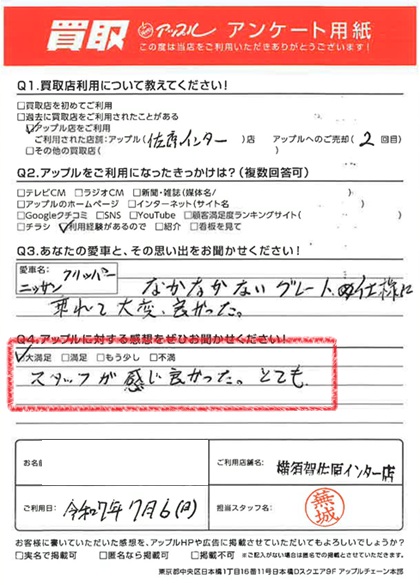 買取 アップル アンケート用紙
この度は当店をご利用いただきありがとうございます!
Q1.買取店利用について教えてください!
□買取店を初めてご利用
□過去に買取店をご利用されたことがある
☑アップル店をご利用
ご利用された店舗:アップル(佐原インター)店 アップルへのご売却(2回目)
□その他の買取店( )
Q2.アップルをご利用になったきっかけは?(複数回答可)
□テレビCM □ラジオCM □新聞・雑誌(媒体名/ )
□アップルのホームページ □インターネット(サイト名 )
□Googleクチコミ □SNS □YouTube □顧客満足度ランキングサイト( )
□チラシ ☑利用経験があるので □紹介 □看板を見て
Q3.あなたの愛車と、その思い出をお聞かせください!
愛車名:
ニッサン クリッパー なかなかない グレート、仕様に
乗れて大変、良かった。
Q4.アップルに対する感想をぜひお聞かせください!
☑大満足 □満足 □もう少し □不満
スタッフが感じ良かった。とても
お名
ご利用店舗名:
横須賀佐原インター店
ご利用日: 令和7年7月6(日)
担当スタッフ名: 蕪城
お客様に書いていただいた感想を、アップルHPや広告に掲載させていただいてもよろしいでしょうか?
□実名で掲載可 □匿名なら掲載可 □掲載不可 ※ご記入がない場合は匿名での掲載とさせていただきます。
東京都中央区日本橋1丁目16番11号日本橋Dスクエア9F アップルチェーン本部